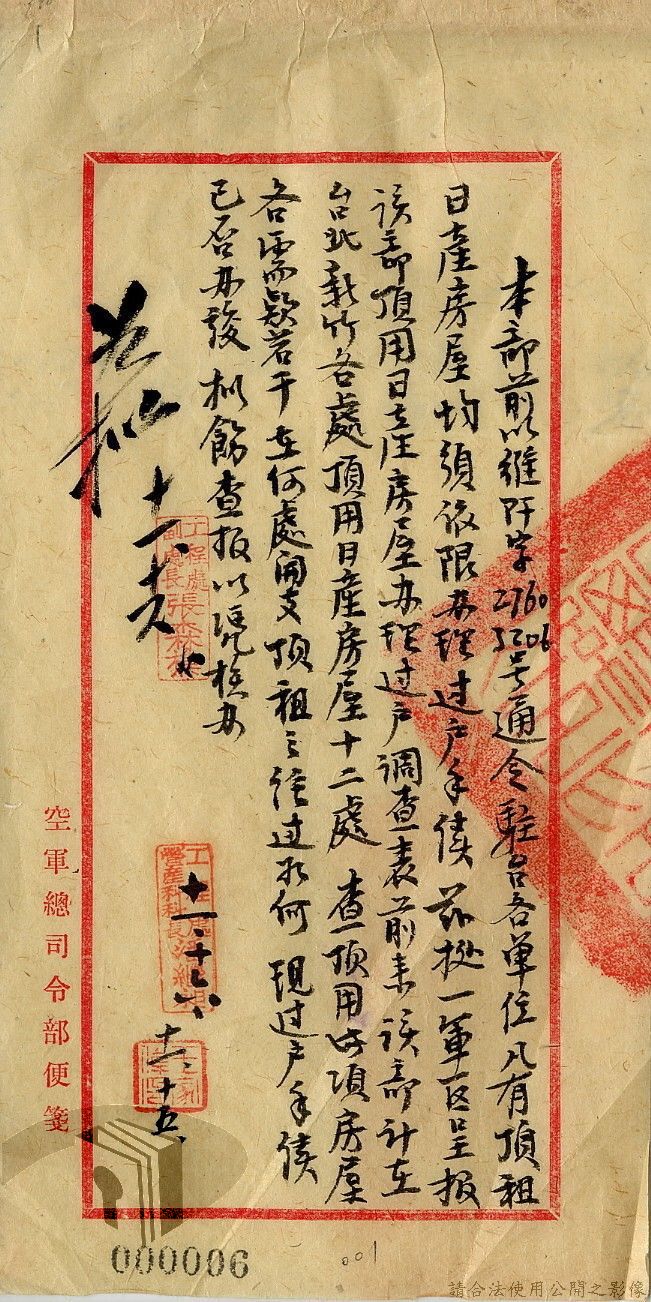 本部前以維阡字2760 5206号通令駐台各單位凡有頂租
日產房屋均須依限办理过户手续 茲據一軍区呈报
该部頂用日產房屋办理过户調查表前来 该部計在
台北新竹各處頂用日產房屋十二處 查頂用此項房屋
各需款若干 在何處開支 頂租之经过如何 現过户手续
已否办竣 拟飭查报以凭核办
如拟
十一、十六
工程處
副處長張森
十一、十六
工程處
營產科科長
十一、十五
空軍總司令部便箋
000006
001
請合法使用公開之影像